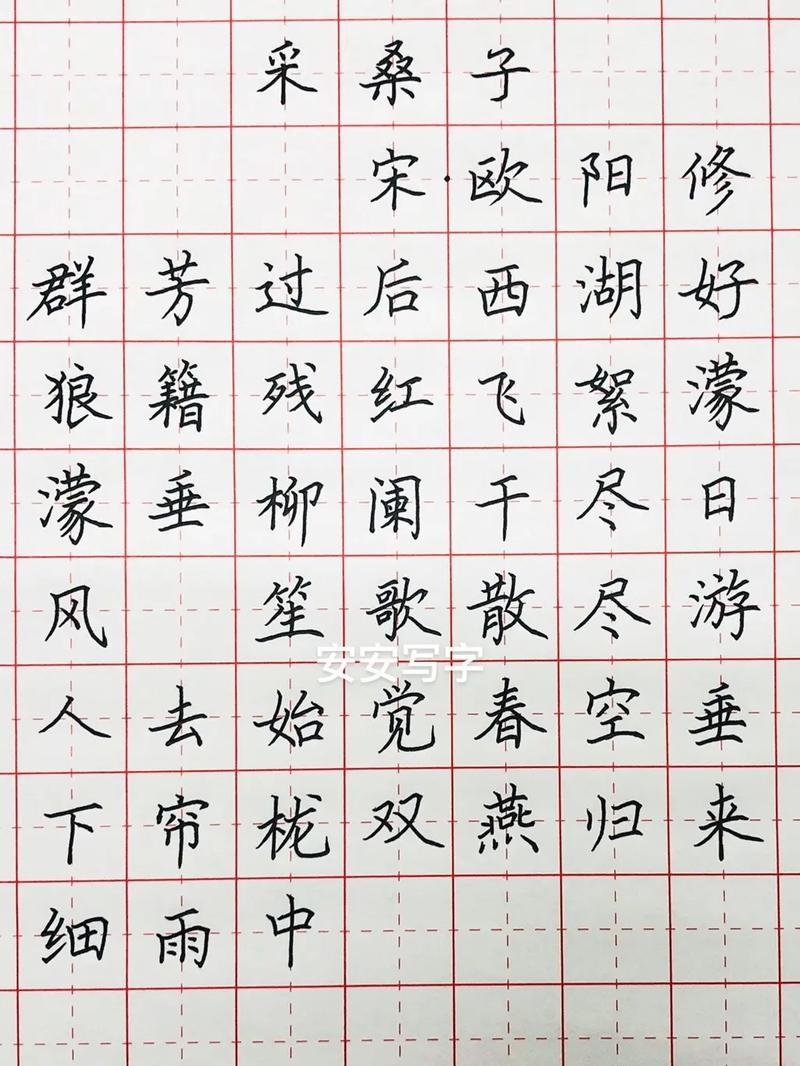 采桑子
宋·欧阳修
群芳过后西湖好
狼籍残红飞絮濛
濛垂柳阑干尽日
风 笙歌散尽游
安安写字
人去始觉春空垂
下帘栊双燕归来
细雨中